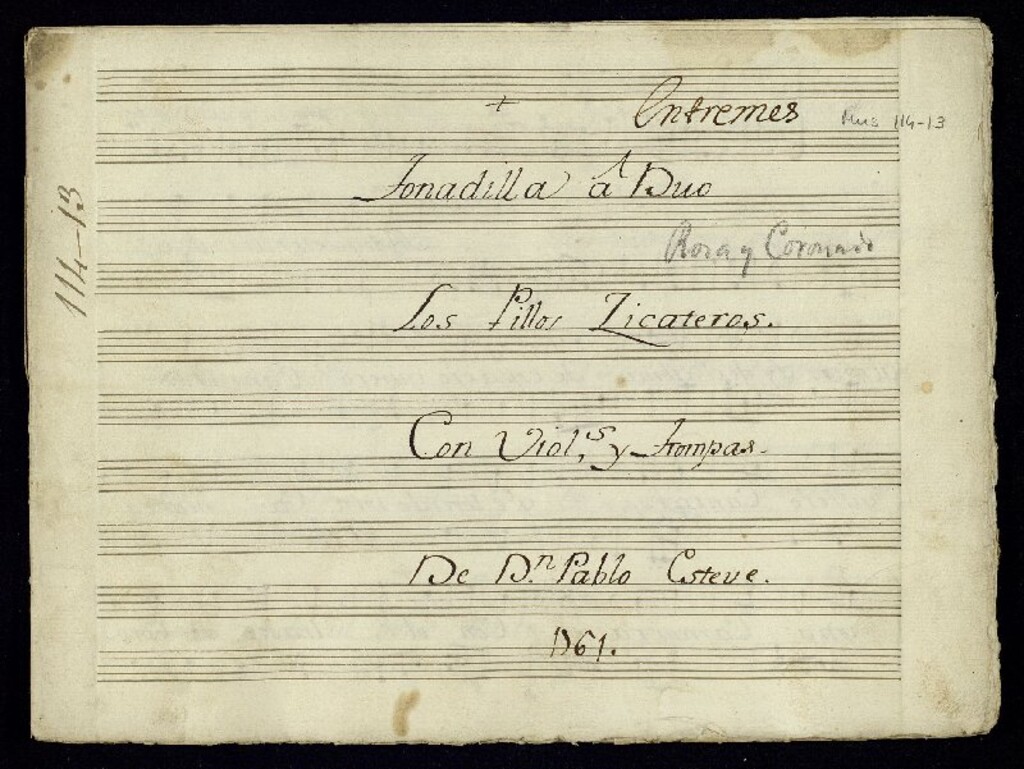 + Entremes
Mus 114-13
Tonadilla á Duo
114-13
Rosa y Coronado
Los Pillos Zicateros.
Con Viol.s y Trompas.
De D.n Pablo Esteve.
1761.